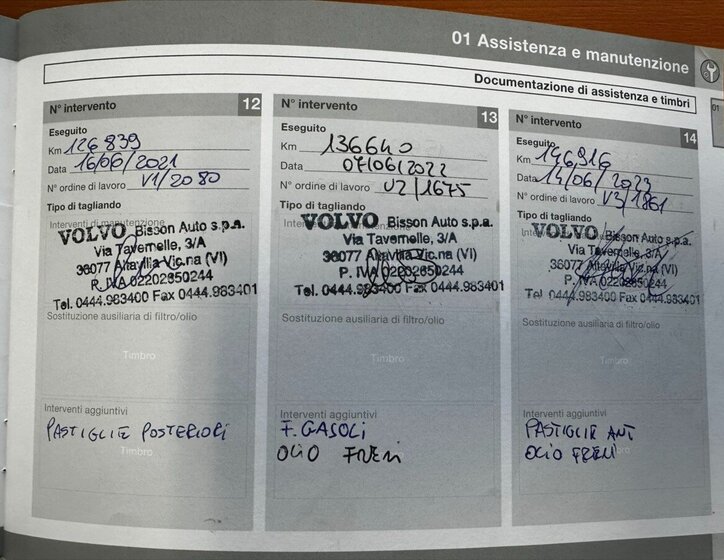 01 Assistenza e manutenzione
Documentazione di assistenza e timbri
01
N° intervento 12
Eseguito
Km 126839
Data 16/06/2021
N° ordine di lavoro V1/2080
Tipo di tagliando
Interventi di manutenzione
VOLVO Bisson Auto s.p.a.
Via Tavernelle, 3/A
36077 Altavilla Vic.na (VI)
P. IVA 02202650244
Tel. 0444.983400 Fax 0444.983401
Sostituzione ausiliaria di filtro/olio
Timbro
Interventi aggiuntivi
PASTIGLIE POSTERIORI
Timbro
N° intervento 13
Eseguito
Km 136640
Data 07/06/2022
N° ordine di lavoro V2/1675
Tipo di tagliando
VOLVO Bisson Auto s.p.a.
Via Tavernelle, 3/A
36077 Altavilla Vic.na (VI)
P. IVA 02202650244
Tel. 0444.983400 Fax 0444.983401
Sostituzione ausiliaria di filtro/olio
Timbro
Interventi aggiuntivi
F. GASOLI
OLIO FRENI
N° intervento 14
Eseguito
Km 146,916
Data 14/06/2023
N° ordine di lavoro V3/1861
Tipo di tagliando
VOLVO Bisson Auto s.p.a.
Via Tavernelle, 3/A
36077 Altavilla Vic.na (VI)
P. IVA 02202650244
Tel. 0444.983400 Fax 0444.983401
Sostituzione ausiliaria di filtro/olio
Timbro
Interventi aggiuntivi
PASTIGLIE ANT
OLIO FRENI
Timbro